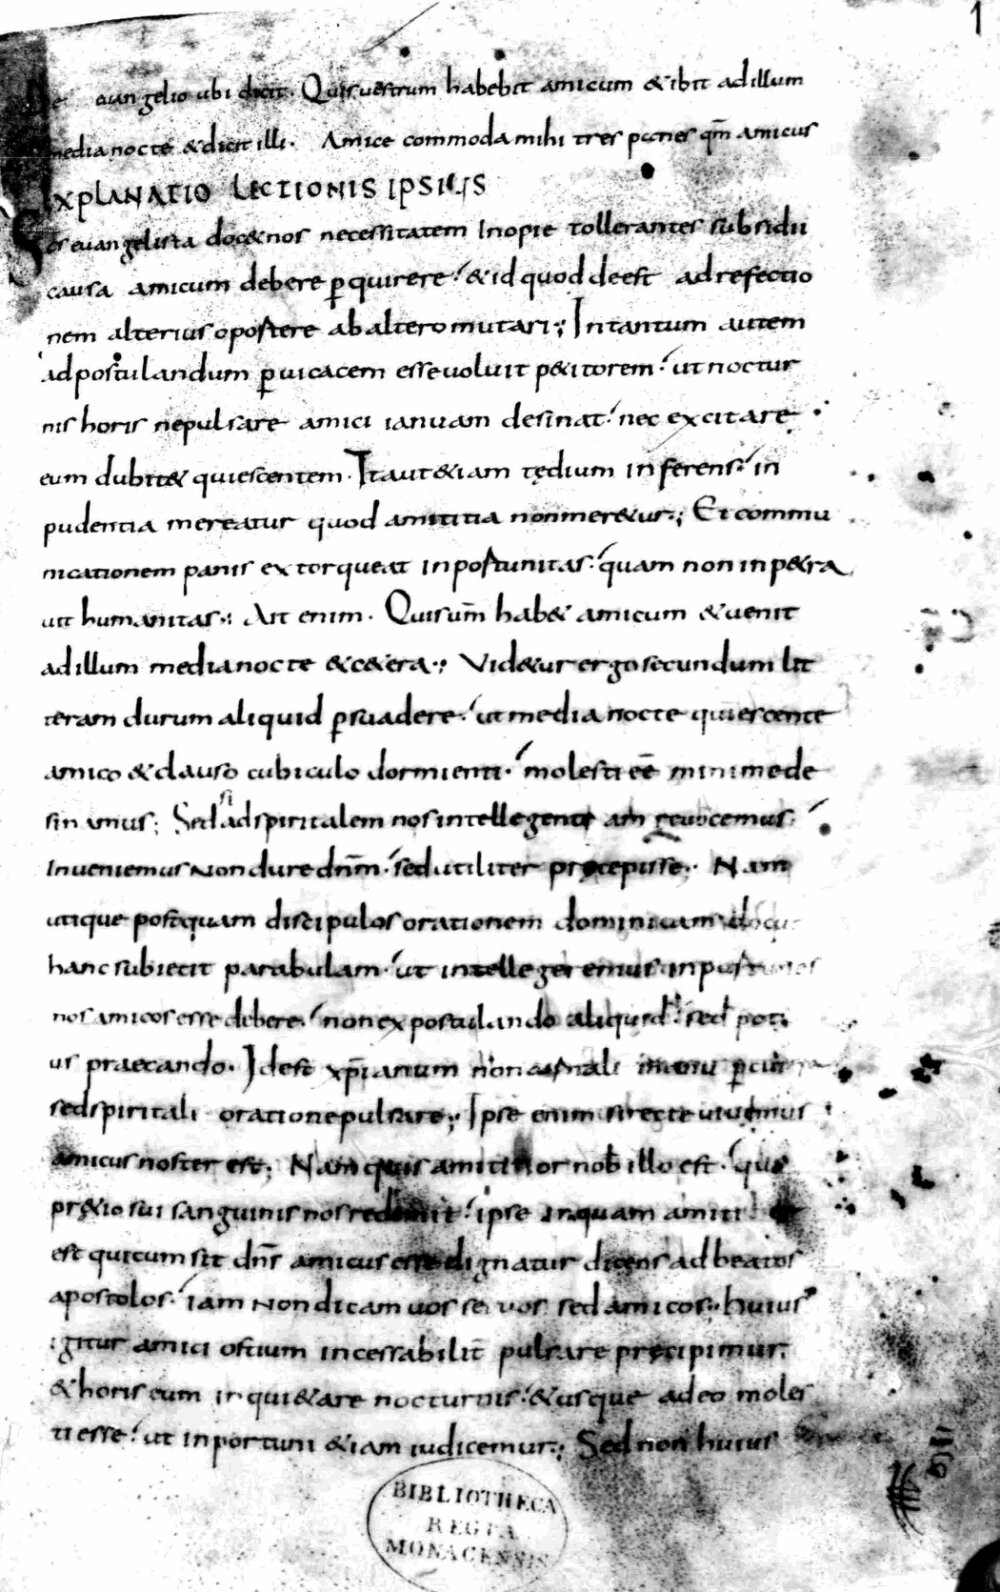 1
De euangelio ubi dicit. Quis uestrum habebit amicum & ibit ad illum
media nocte & dicit illi. Amice commoda mihi tres panes qm̄ amicus
EXPLANATIO LECTIONIS IPSIUS
Sos euangelista doc&nos necessitatem Inopie tollerantes subsidii
causa amicum debere ꝑquirere & id quod deest ad refectio
nem alterius oportere ab altero mutari; Intantum autem
ad postulandum ꝑuicacem esse uoluit p&itorem ut noctur
nis horis nepulsare amici ianuam desinat nec excitare
eum dubit& quiescentem. Itaut&iam tędium inferens in
pudentia mereatur quod amititia nonmer&ur; Et commu
nicationem panis extorqueat inportunitas quam non inp&ra
uit humanitas; Ait enim. Quisum̄ hab& amicum &uenit
adillum medianocte &c&era; Vid&ur ergo secundum lit
teram durum aliquid ꝑsuadere. ut media nocte quiescente
amico & clauso cubiculo dormienti. molesti eē minime de
sinamus; Sed si ad spiritalem nos intellegent am
Inueniemus Non dure dn̄m. sed utiliter pręcepisse. Nam
utique postquam discipulos orationem dominicam
hanc subiecit parabulam. ut intellegeremus inportunos
nos amicos esse debere. non expostulando aliquid sed poti
us praecando. Idest xp̄ianum non carnali manu
sed spiritali oratione pulsare; Ipse enim si recte uiuimus
amicus noster est; Nam quis amitior nob̄ illo est. qui
pr&io sui sanguinis nos redemit ipse inquam amiti
est qui cum sit dn̄s amicus esse dignatur dicens ad beatos
apostolos. iam Non dicam uos seruos sed amicos. huius
igitur amici ostium incessabilit̄ pulsare pręcipimur.
& horis eum inqui&are nocturnis. &usque adeo moles
ti esse. ut inportuni &iam iudicemur; Sed non huius
BIBLIOTHECA
REGIA
MONACENSIS